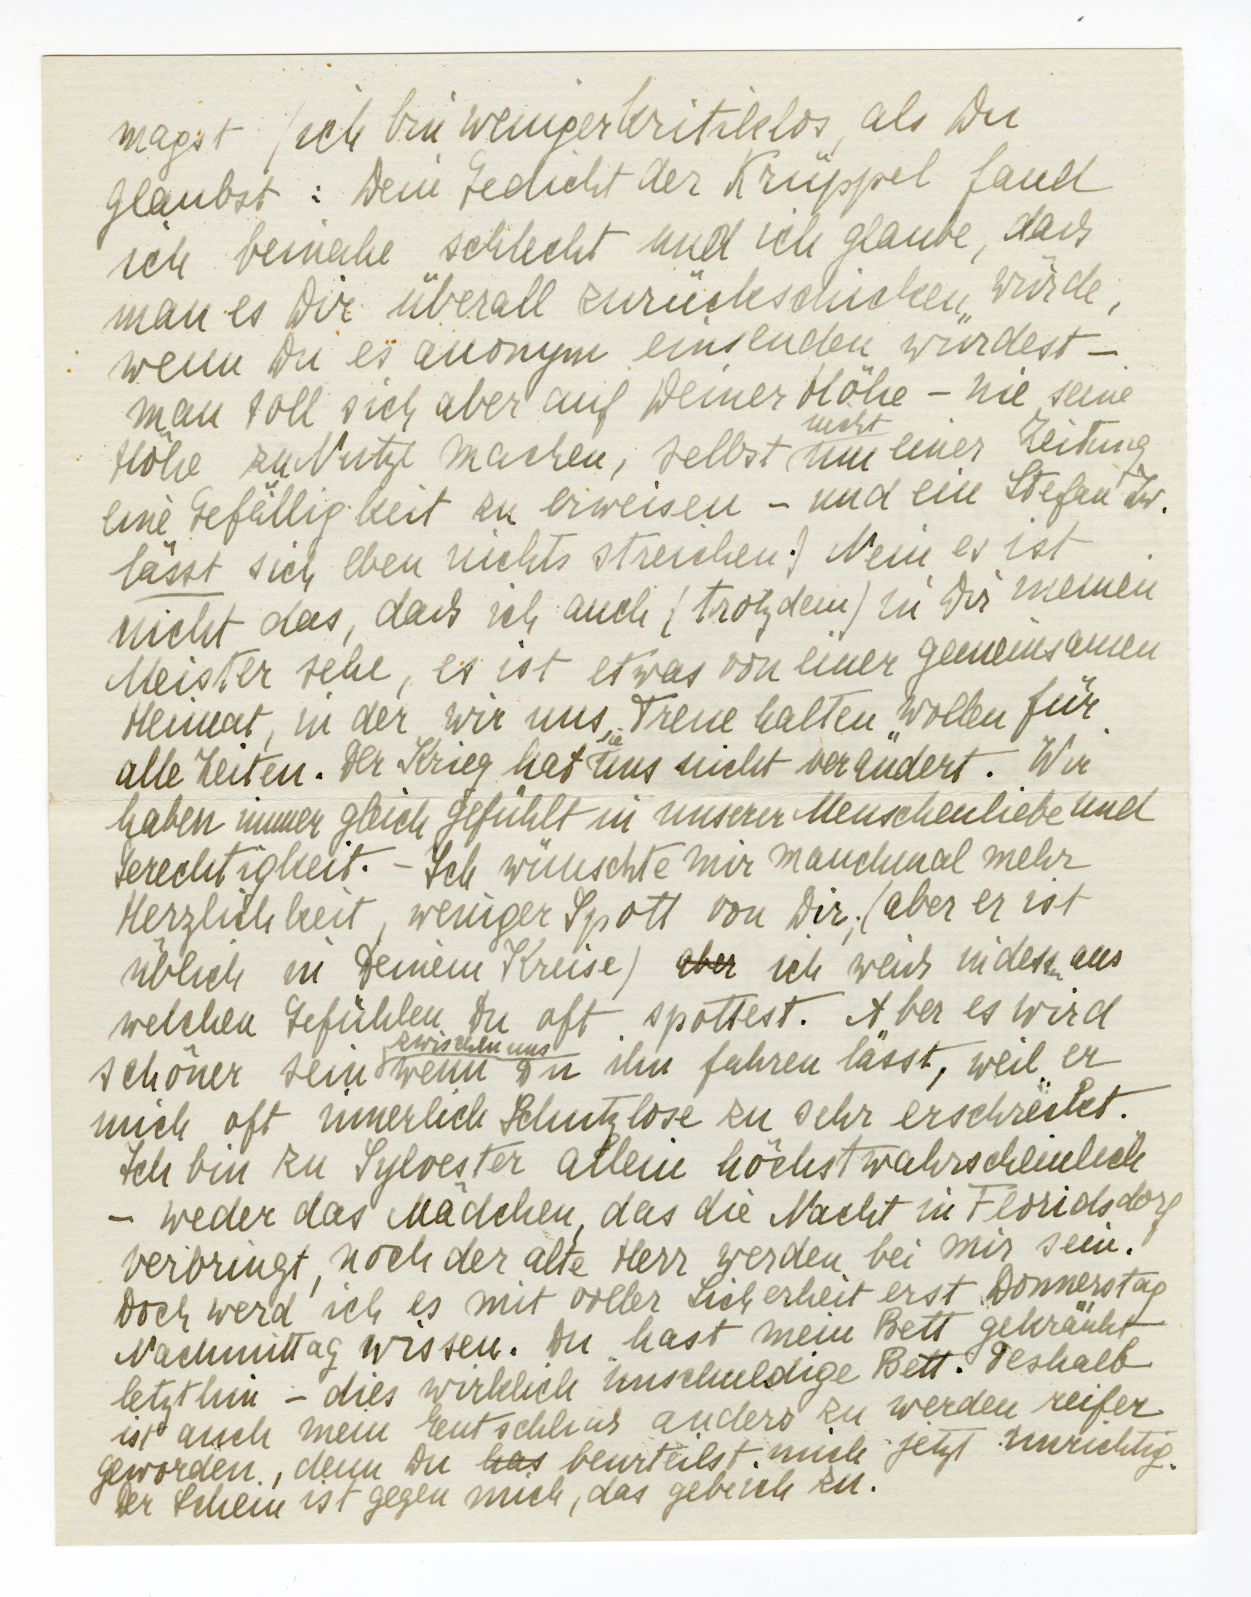 magst (ich bin weniger kritiklos, als Du
glaubst : Dein Gedicht der Krüppel fand
ich beinahe schlecht und ich glaube, dass
man es Dir überall zurückschicken würde,
wenn Du es anonym einsenden würdest –
man soll sich aber auf Deiner Höhe – nie seine
Höhe zu Nutze machen, selbst nicht um einer Zeitung
eine Gefälligkeit zu erweisen – und ein Stefan Zw.
lässt sich eben nichts streichen.) Nein es ist
nicht das, dass ich auch (trotzdem) in Dir meinen
Meister sehe, es ist etwas von einer gemeinsamen
Heimat, in der wir uns Treue halten wollen für
alle Zeiten. Der Krieg hat sie uns nicht verändert. Wir
haben immer gleich gefühlt in unserer Menschenliebe und
Gerechtigkeit. – Ich wünschte mir manchmal mehr
Herzlichkeit, weniger Spott von Dir, (aber er ist
üblich in Deinem Kreise) aber ich weiss indess aus
welchen Gefühlen Du oft spottest. Aber es wird
schöner sein zwischen uns wenn Du ihn fahren lässt, weil er
mich oft innerlich Schutzlose zu sehr erschreckt.
Ich bin zu Sylvester allein höchstwahrscheinlich
– weder das Mädchen, das die Nacht in Floridsdorf
verbringt, noch der alte Herr werden bei mir sein.
Doch werd ich es mit voller Sicherheit erst Donnerstag
Nachmittag wissen. Du hast mein Bett gekränkt
letzthin – dies wirklich unschuldige Bett. Deshalb
ist auch mein Entschluss anders zu werden reifer
geworden, denn Du has beurteilst mich jetzt unrichtig.
Der Schein ist gegen mich, das geb ich zu.